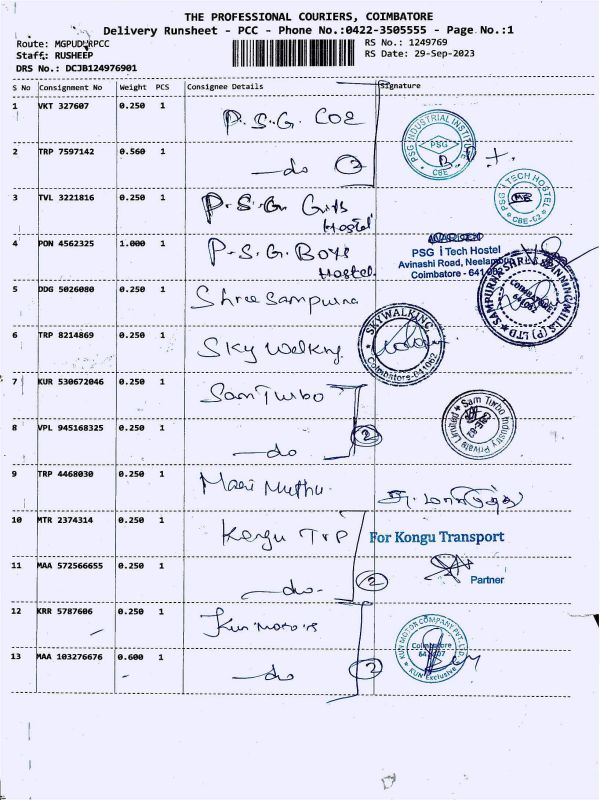 THE PROFESSIONAL COURIERS, COIMBATORE
Delivery Runsheet - PCC - Phone No.:0422-3505555 - Page No.:1
Route: MGPUDURPCC RS No.: 1249769
Staff: RUSHEEP RS Date: 29-Sep-2023
DRS No.: DCJB124976901
S No Consignment No Weight PCS Consignee Details Signature
1 VKT 327607 0.250 1 P.S.G. COE
PSG INDUSTRIAL INSTITUTE PSG CBE
2 TRP 7597142 0.560 1 —do 2
3 TVL 3221816 0.250 1 P.S.G. Girls Hostel
PSG iTECH HOSTEL CBE-62
4 PON 4562325 1.000 1 P.S.G. Boys Hostel
WARDEN
PSG iTech Hostel
Avinashi Road, Neelambur
Coimbatore - 641 062
5 DDG 5026080 0.250 1 Shree Sampurna
6 TRP 8214869 0.250 1 Sky Walking
SKYWALKING Coimbatore-641062
7 KUR 530672046 0.250 1 Sam Turbo
Sam Turbo Industry Private Limited
8 VPL 945168325 0.250 1 —do 2
9 TRP 4468030 0.250 1 Mari Muthu
10 MTR 2374314 0.250 1 Kongu TRP
For Kongu Transport
11 MAA 572566655 0.250 1 —do- 2
Partner
12 KRR 5787606 0.250 1 Kun Motors
KUN MOTOR COMPANY PVT. LTD. Coimbatore KUN Exclusive
13 MAA 103276676 0.600 1 —do 2